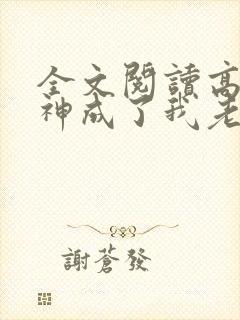 全文閱讀高
神成了我老
謝蒼發